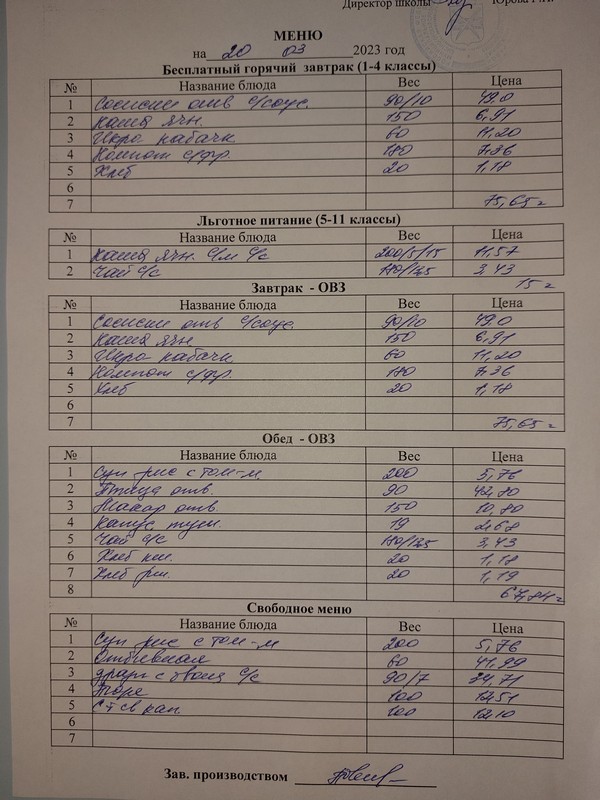 Директор школы
МЕНЮ
на 20 03 2023 год
Бесплатный горячий завтрак (1-4 классы)
№ Название блюда Вес Цена
1 Сосиски отв с/соус. 90/10 49,0
2 Каша ячн. 150 6,91
3 Икра кабачк. 60 11,20
4 Компот с/фр. 180 7,36
5 Хлеб 20 1,18
6
7 75,65
Льготное питание (5-11 классы)
№ Название блюда Вес Цена
1 Каша ячн. с/м с/с 200/5/15 11,57
2 Чай с/с 3,43
15
Завтрак - ОВЗ
№ Название блюда Вес Цена
1 Сосиски отв с/соус. 90/10 49,0
2 Каша ячн 150 6,91
3 Икра кабачк. 60 11,20
4 Компот с/фр. 180 7,36
5 Хлеб 20 1,18
6
7 75,65
Обед - ОВЗ
№ Название блюда Вес Цена
1 Суп рис с том-м. 200 5,76
2 Птица отв. 90 42,80
3 Макар отв. 150 10,80
4 Капус туш. 19 2,68
5 Чай с/с 3,43
6 Хлеб пш. 20 1,18
7 Хлеб рж. 20 1,19
8 67,84
Свободное меню
№ Название блюда Вес Цена
1 Суп рис с том-м 200 5,76
2 Отбивная 60 41,99
3 с/с 90/7 24,71
4 Пюре 100 12,51
5 кап. 100 12,10
6
7
Зав. производством